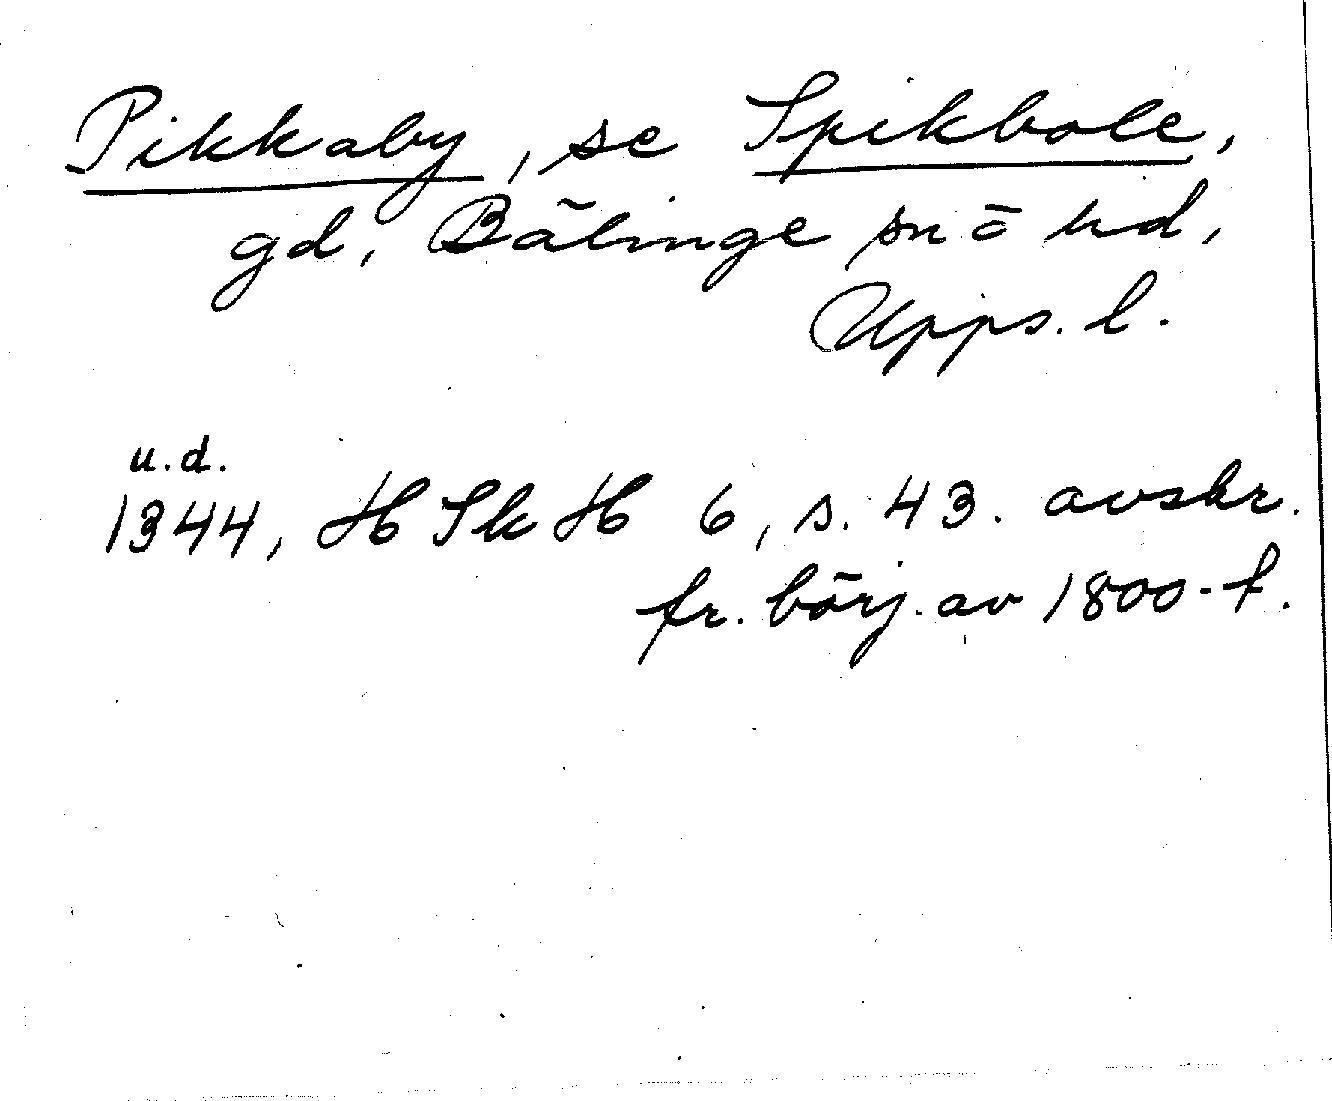 Pikkaby, se Spikbole,
gd, Bälinge sn o hd,
Upps. l.
u.d.
1344, HSkH 6, s. 43. avskr.
fr. börj. av 1800-t.